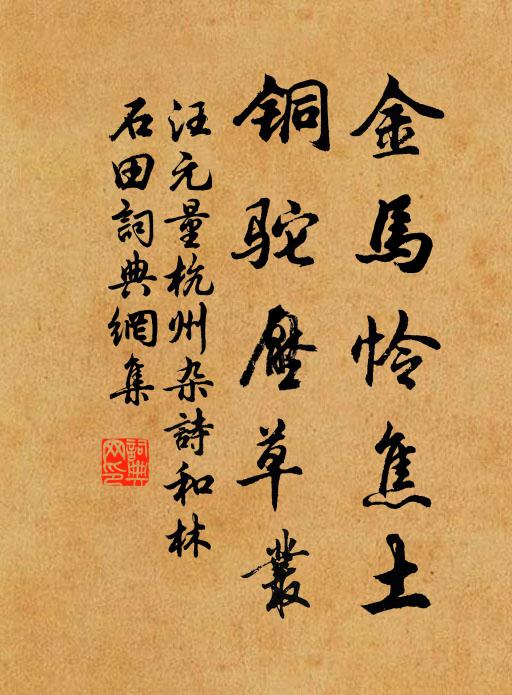 金馬怜焦土
銅驼壓草叢
汪元量杭州杂詩和林
石田詞典網集
詞典
网印